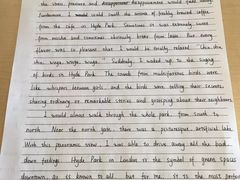 the stress, pressure and disappointment would fade away.
Furthermore I would could smell the aroma of freshly brewed coffee
from the cafe in Hyde Park. Sometimes it was extremely sweet
from mocha and sometimes obviously bitter from latte. But every
flavor was so pleasant that I would be totally relaxed.
Suddenly, I waked up to the singing
of birds in Hyde Park. The sounds from multifarious birds were
like whispers between girls, and the birds were telling their secrets,
sharing ordinary or remarkable stories and gossiping about their neighbours.
I would always walk through the whole park from south to
north. Near the north gate, there was a picturesque artificial lake.
With this panoramic view, I was able to drive away all the bad
down feelings. Hyde Park in London is the symbol of green spaces
downtown, as is known to all, but for me, it is the most